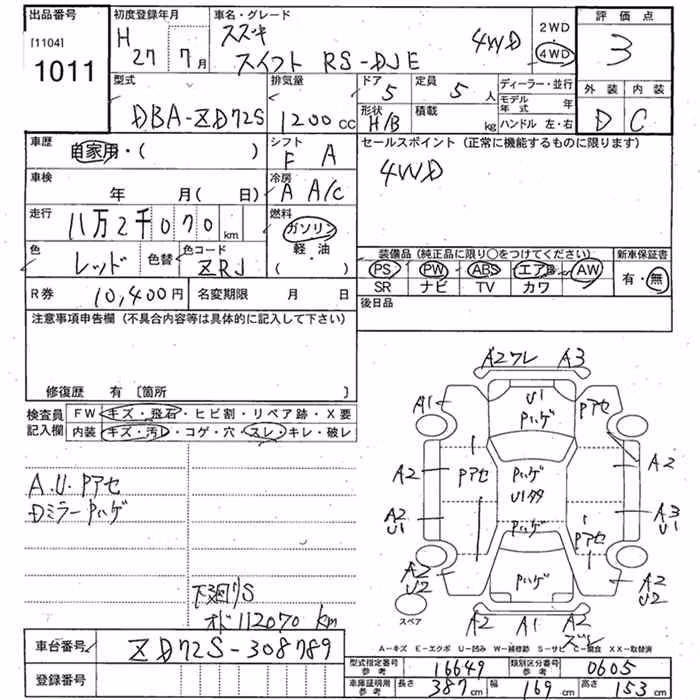 出品番号 初度登録年月 車名・グレード 評価点
[1104] H 27 7月 スズキ 4WD 2WD 3
1011 スイフト RS-DJE 4WD
型式 排気量 ドア 定員 ディーラー・並行 外装 内装
DBA-ZD72S 1200cc 5 5人 モデル年式 年 D C
形状 積載
H/B kg ハンドル 左・右
車歴 自家用・( ) シフト セールスポイント (正常に機能するものに限ります)
F A 4WD
車検 年 月( 日) 冷房
A A/C
走行 11万2千070km 燃料
ガソリン
軽・油
( )
色 レッド 色替 色コード ZRJ 装備品(純正品に限り○をつけてください) 新車保証書
PS PW ABS エアB AW 有・無
R券 10,400円 名変期限 月 日 SR ナビ TV カワ
注意事項申告欄(不具合内容等は具体的に記入して下さい) 後日品
修復歴 有 [箇所 ]
検査員 FW キズ・飛石・ヒビ割・リペア跡・X要
記入欄 内装 キズ・汚レ・コゲ・穴・スレ・キレ・破レ
A2ワレ A3
A1 U1 Pハゲ Pアセ
A2 Pアセ Pハゲ A2
U1タタ
A2 U1 Pハゲ Pアセ A3 U1
A2 U2 Pハゲ A2 U2
A2 A1 A2
ズレ
スペア
A.U.Pアセ
Dミラー Pハゲ
下廻りS
オド112070km
A-キズ E-エクボ U-凹み W-補修跡 S-サビ C-腐食 XX-取替済
車台番号 ZD72S-308789
型式指定番号 参考 16649 類別区分番号 参考 0605
登録番号
車庫証明用 参考 長さ 387cm 幅 169cm 高さ 153cm